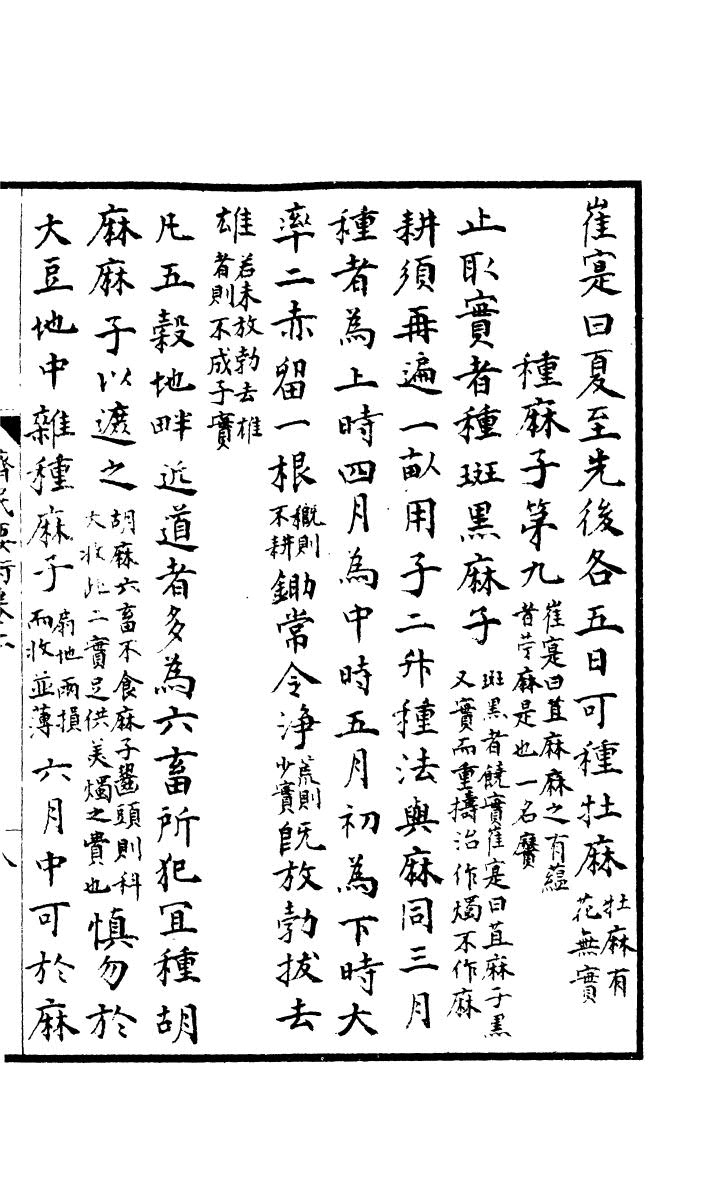 崔寔曰夏至先後各五日可種牡麻牡麻有花無實
種麻子第九崔寔曰苴麻麻之有蘊者苧麻是也一名黂
止取實者種斑黑麻子斑黑者饒實崔寔曰苴麻子黑又實而重擣治作燭不作麻
耕須再遍一畝用子二升種法與麻同三月
種者為上時四月為中時五月初為下時大
率二赤留一根概則不耕鋤常令淨荒則少實既放勃拔去
雄若未放勃去雄者則不成子實
凡五穀地畔近道者多為六畜所犯宜種胡
麻麻子以遮之胡麻六畜不食麻子齧頭則科大收此二實足供美燭之費也慎勿於
大豆地中雜種麻子扇地兩損而收並薄六月中可於麻
齊民要術卷二
十八